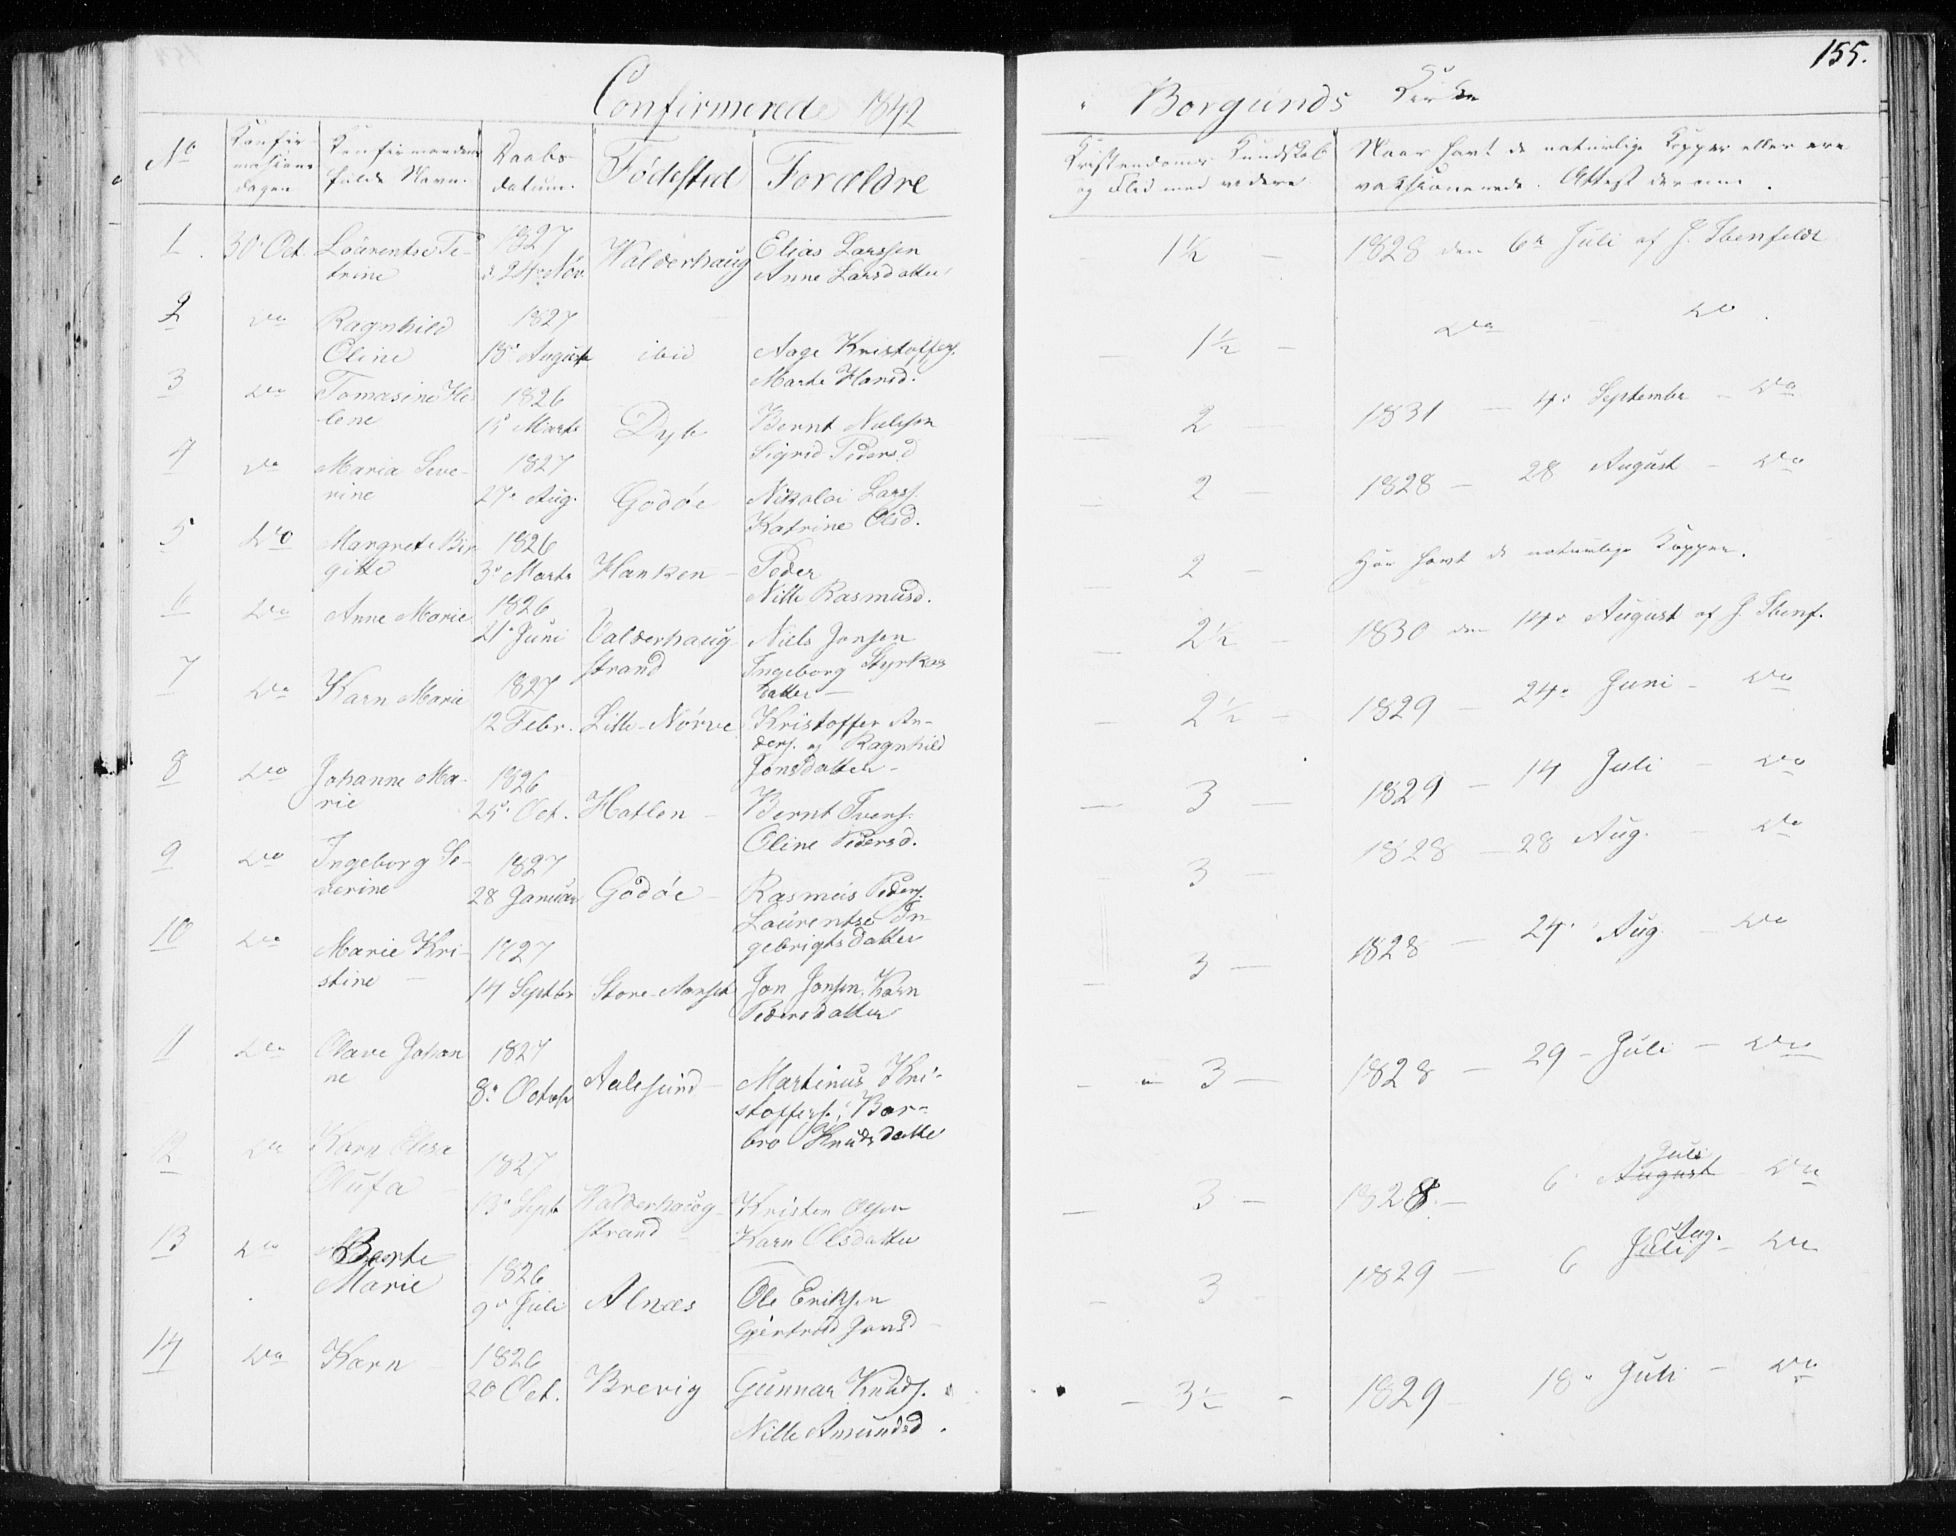 155.
Confirmerede 1842 i Borgunds Kirke
No Konfirmations dagen Konfirmandens fulde Navn. Daabs datum. Fødested Forældre Kristendoms Kundskab og Flid med videre Naar havt de naturlige Kopper eller ere vaksinerede. Attest derom.
1. 30. Oct. Laurentse Petrine 1827 d. 24. Nov. Walderhaug Elias Larssen Anne Larsdatter 1½ 1828 den 6te Juli af J. Ibenfeldt
2 do Ragnhild Oline 1827 18. August ibid Aage Kristoffers. Marte Hansd. 1½ do do
3 do Tomasine Helene 1826 Marts Dyb Bernt Nielssen Sigrid Pedersd 2 1831 4. Septembr do
4 do Maria Severine 1827 27. Aug. Godøe Nikolai Larss. Katrine Olsd. 2 1828 28 August do
5 do Margrete Birgitte 1826 3. Marts Hanken Peder Nille Rasmusd. 2 Har havt de naturlige Kopper.
6 do Anne Marie 1826 21. Juni Valderhaug strand Niels Jonsen Ingeborg Styrkers datter 2½ 1830 den 14. August af J. Ibenf.
7 do Karn Marie 1827 12 Febr. Lille-Nørve Kristoffer Anders. og Ragnhild Jonsdatter 2½ 1829 24. Juni do
8 do Johanne Marie 1826 25. Oct. Hatlen Bernt Ivers. Oline Pedersd. 3 1829 14 Juli do
9 do Ingeborg Severine 1827 28 Januar Godøe Rasmus Peders. Laurentse Ingebrigtsdatter 3 1828 28 Aug. do
10 do Marie Kristine 1827 14 Septbr Store-Aarset Jon Jonsen, Karn Pedersdatter 3 1828 24. Aug. do
11 do Olave Johanne 1827 8. Octobr Aalesund Martinus Kristoffers. Barbro Knudsdatter 3 1828 29 Juli do
12 do Karn Elise Olufa 1827 13. Sept Walderhaugstrand Kristen Olsen Karn Olsdatter 3 1828 6 August Juli do
13 do Berte Marie 1826 9. Juli Alnæs Ole Eriksen Gjertrud Jonsd 3 1829 6 Juli Aug. do
14 do Karn 1826 20 Oct. Brevig Gunnar Knuds. Nille Amundsd. 3½ 1829 18. Juli do